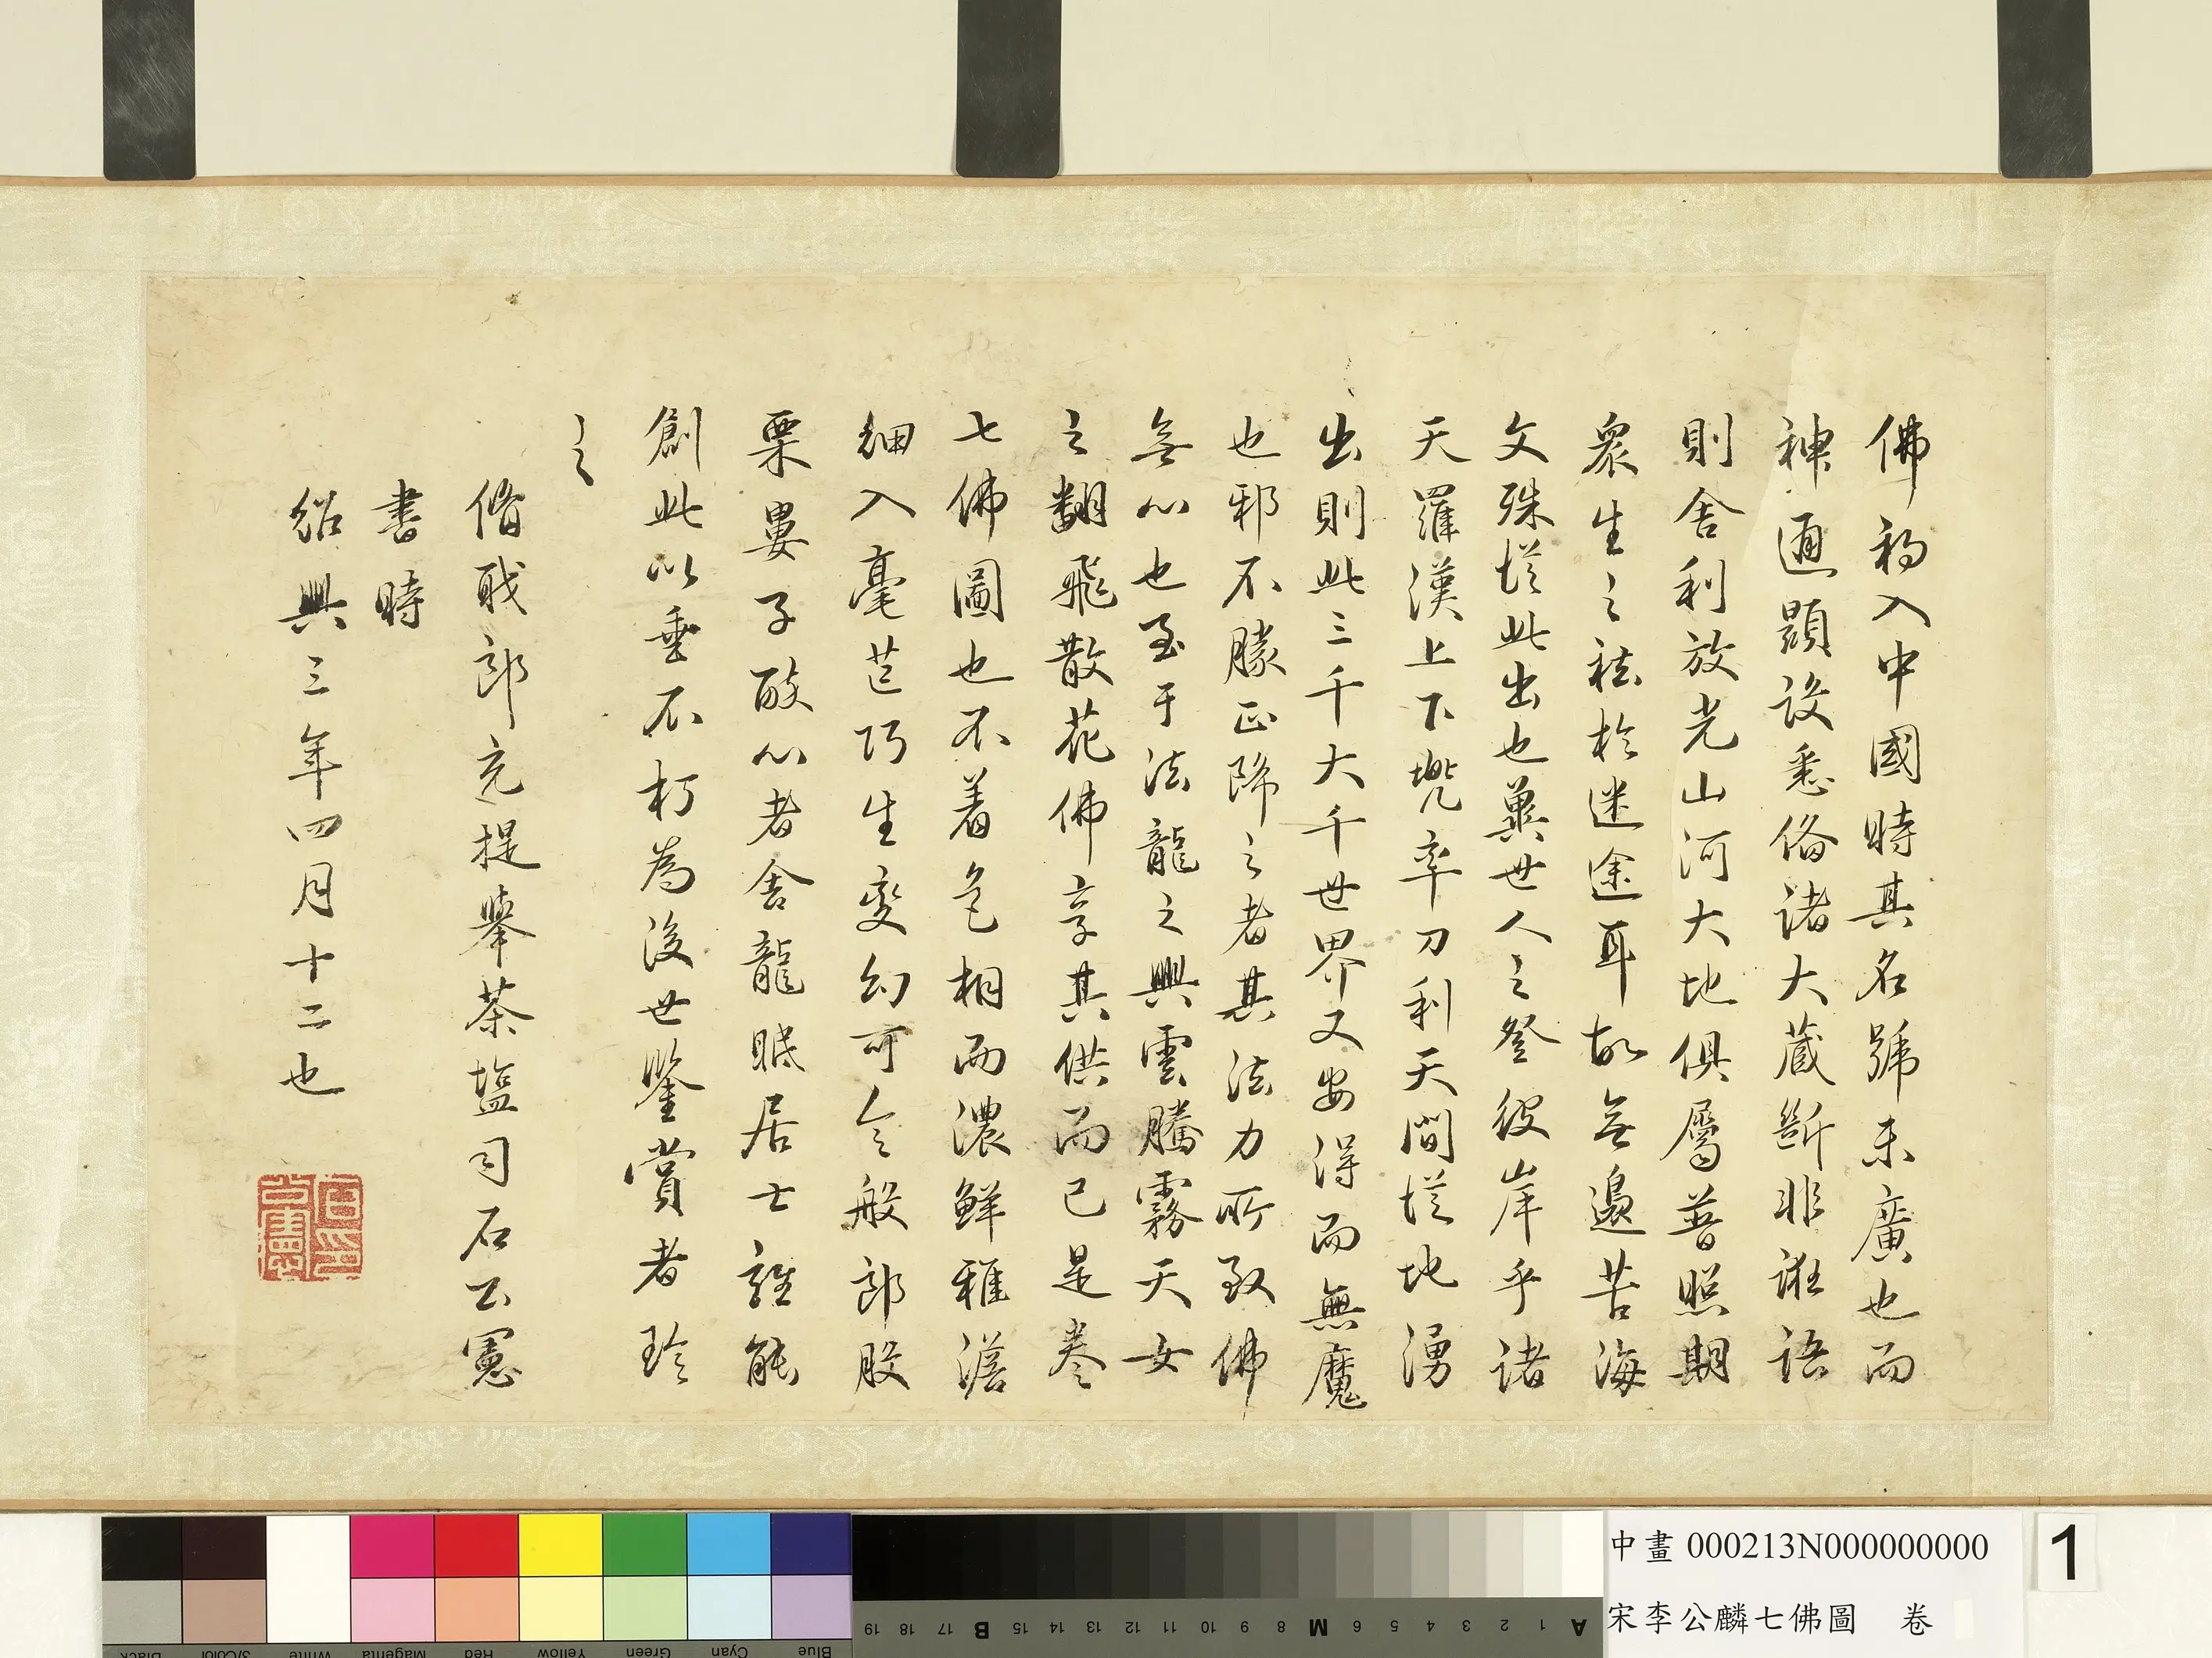 佛初入中國時其名號未廣也而
神通顯設悉俻諸大藏斷非誑語
則舍利放光山河大地俱屬普照期
衆生之祛於迷途耳故無邊苦海
文殊從此出也冀世人之登彼岸乎諸
天羅漢上下兜率刀利天間從地湧
出則此三千大千世界又安得而無魔
也邪不勝正降之者其法力所致佛
無心也至于法龍之興雲騰霧天女
之翻飛散花佛享其供而已是卷
七佛圖也不着色相而濃鮮雅澹
細入毫芒巧生變幻可令般郎股
栗婁子酸心者舍龍眠居士誰能
創此以垂不朽為後世鑒賞者珍
之
脩職郎充提舉茶鹽司石公憲
書時
紹興三年四月十二也
中畫 000213N000000000
宋李公麟七佛圖 卷
1
Black 3/Color White Magenta Red Yellow Green Cyan Blue
19 18 17 B 16 15 14 13 12 11 10 9 8 M 7 6 5 4 3 2 1 A